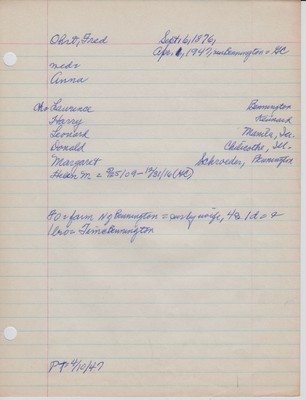 Ohrt, Fred Sept. 16, 1876,
Apr. 6, 1947, near Bennington = GC
med=
Anna
Ch= Laurence Bennington
Harry
Leonard
Donald Chilicothe, Ill.
Margaret Schroeder, Bennington
Helen M = 9/25/09-12/31/16 (HC)
TO = farm N of Bennington = sur by wife, 4s. 1d = 2
bro = Tim = Bennington
PP 4/10/47